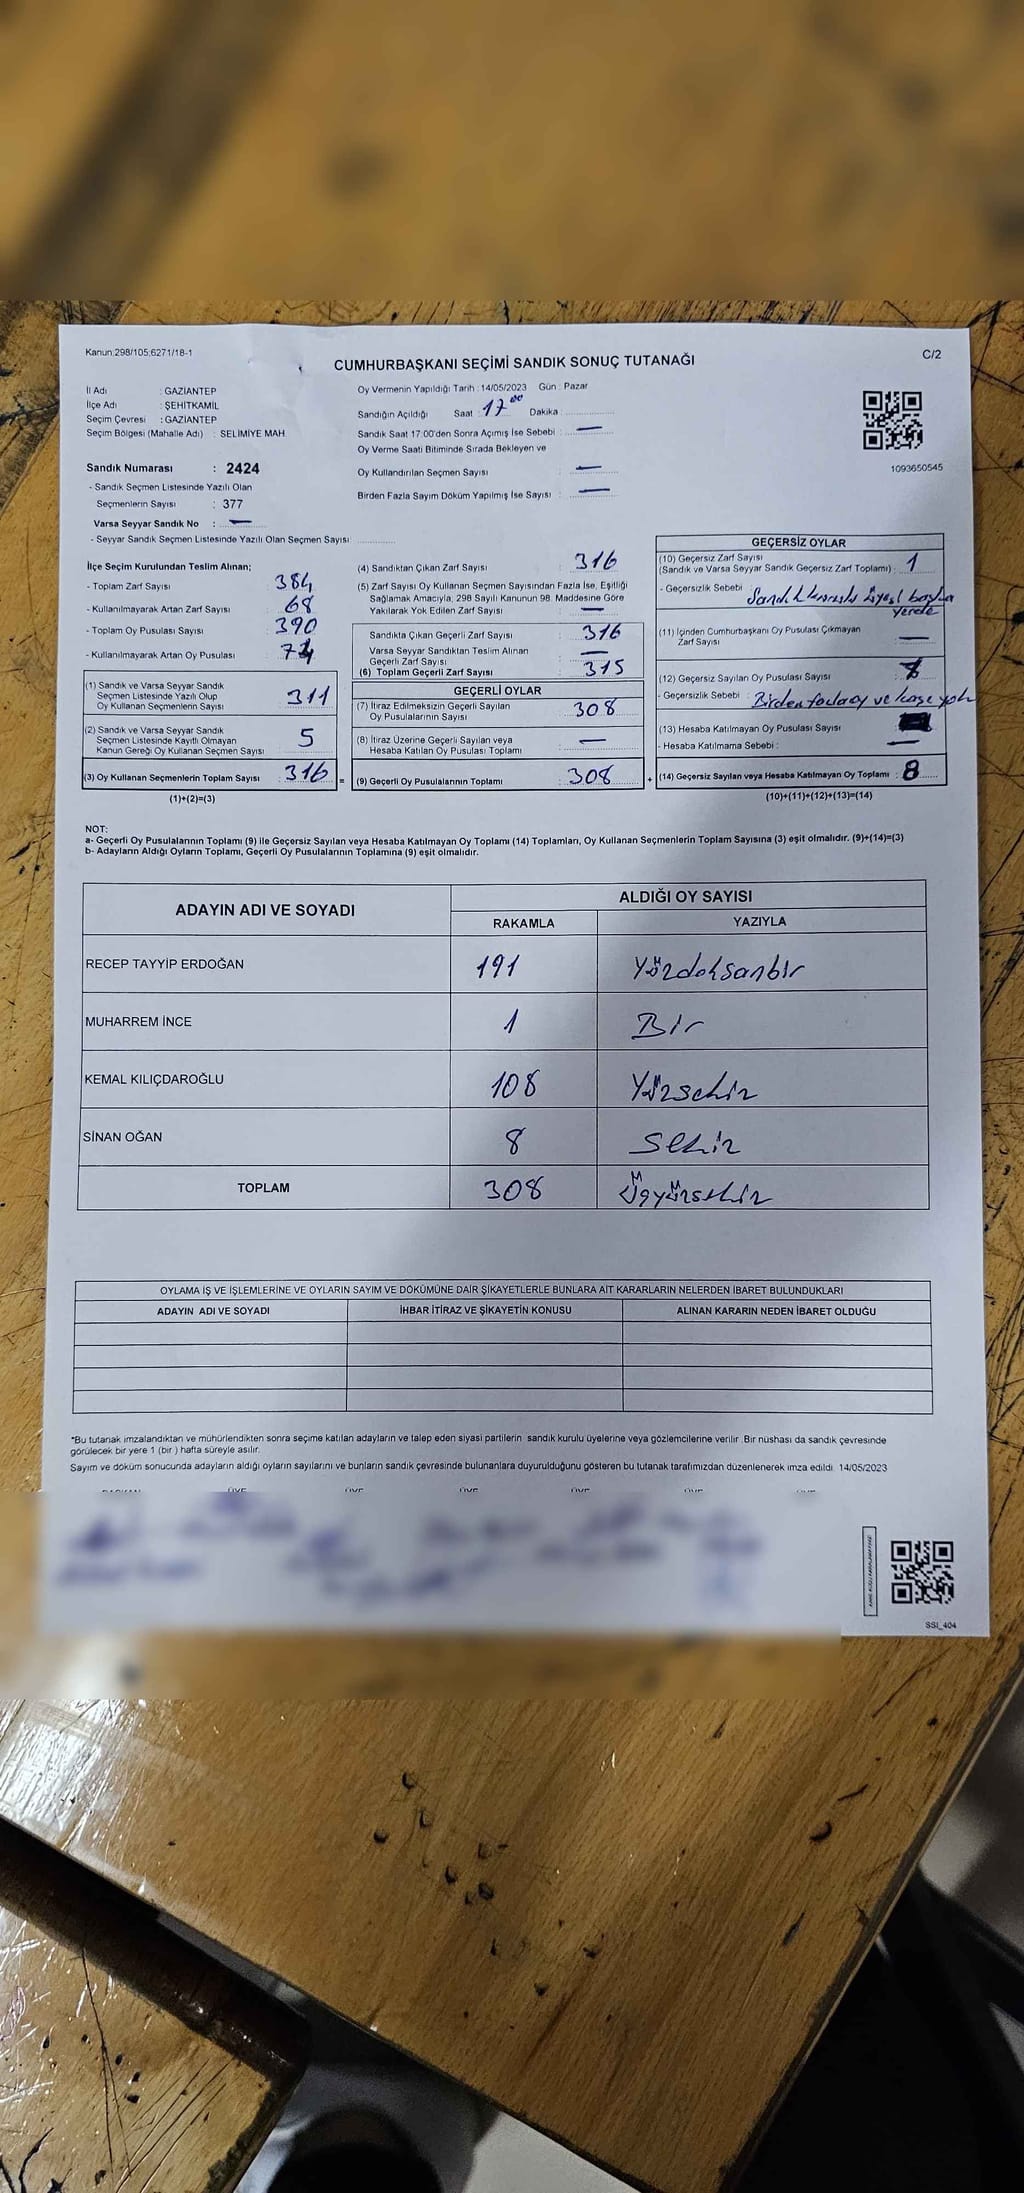 Kanun:298/105;6271/18-1
C/2
CUMHURBAŞKANI SEÇİMİ SANDIK SONUÇ TUTANAĞI
İl Adı : GAZİANTEP
İlçe Adı : ŞEHİTKAMİL
Seçim Çevresi : GAZİANTEP
Seçim Bölgesi (Mahalle Adı) : SELİMİYE MAH.
Sandık Numarası : 2424
- Sandık Seçmen Listesinde Yazılı Olan
Seçmenlerin Sayısı : 377
Varsa Seyyar Sandık No : —
- Seyyar Sandık Seçmen Listesinde Yazılı Olan Seçmen Sayısı:
Oy Vermenin Yapıldığı Tarih : 14/05/2023 Gün : Pazar
Sandığın Açıldığı Saat : 17 00 Dakika :
Sandık Saat 17:00'den Sonra Açılmış İse Sebebi : —
Oy Verme Saati Bitiminde Sırada Bekleyen ve
Oy Kullandırılan Seçmen Sayısı : —
Birden Fazla Sayım Döküm Yapılmış İse Sayısı : —
1093650545
İlçe Seçim Kurulundan Teslim Alınan;
- Toplam Zarf Sayısı : 384
- Kullanılmayarak Artan Zarf Sayısı : 68
- Toplam Oy Pusulası Sayısı : 390
- Kullanılmayarak Artan Oy Pusulası : 74
(1) Sandık ve Varsa Seyyar Sandık
Seçmen Listesinde Yazılı Olup
Oy Kullanan Seçmenlerin Sayısı : 311
(2) Sandık ve Varsa Seyyar Sandık
Seçmen Listesinde Kayıtlı Olmayan
Kanun Gereği Oy Kullanan Seçmen Sayısı : 5
(3) Oy Kullanan Seçmenlerin Toplam Sayısı : 316 =
(1)+(2)=(3)
(4) Sandıktan Çıkan Zarf Sayısı : 316
(5) Zarf Sayısı Oy Kullanan Seçmen Sayısından Fazla İse, Eşitliği
Sağlamak Amacıyla, 298 Sayılı Kanunun 98. Maddesine Göre
Yakılarak Yok Edilen Zarf Sayısı : —
Sandıkta Çıkan Geçerli Zarf Sayısı : 316
Varsa Seyyar Sandıktan Teslim Alınan
Geçerli Zarf Sayısı : —
(6) Toplam Geçerli Zarf Sayısı : 315
GEÇERLİ OYLAR
(7) İtiraz Edilmeksizin Geçerli Sayılan
Oy Pusulalarının Sayısı : 308
(8) İtiraz Üzerine Geçerli Sayılan veya
Hesaba Katılan Oy Pusulası Toplamı : —
(9) Geçerli Oy Pusulalarının Toplamı : 308 +
GEÇERSİZ OYLAR
(10) Geçersiz Zarf Sayısı
(Sandık ve Varsa Seyyar Sandık Geçersiz Zarf Toplamı) : 1
- Geçersizlik Sebebi : Sandık kurulu üyesi başka
yerde
(11) İçinden Cumhurbaşkanı Oy Pusulası Çıkmayan
Zarf Sayısı : —
(12) Geçersiz Sayılan Oy Pusulası Sayısı :
- Geçersizlik Sebebi : Birden fazla oy ve kaşe yok
(13) Hesaba Katılmayan Oy Pusulası Sayısı :
- Hesaba Katılmama Sebebi : —
(14) Geçersiz Sayılan veya Hesaba Katılmayan Oy Toplamı : 8
(10)+(11)+(12)+(13)=(14)
NOT:
a- Geçerli Oy Pusulalarının Toplamı (9) ile Geçersiz Sayılan veya Hesaba Katılmayan Oy Toplamı (14) Toplamları, Oy Kullanan Seçmenlerin Toplam Sayısına (3) eşit olmalıdır. (9)+(14)=(3)
b- Adayların Aldığı Oyların Toplamı, Geçerli Oy Pusulalarının Toplamına (9) eşit olmalıdır.
ADAYIN ADI VE SOYADI
ALDIĞI OY SAYISI
RAKAMLA YAZIYLA
RECEP TAYYİP ERDOĞAN 191 Yüzdoksanbir
MUHARREM İNCE 1 Bir
KEMAL KILIÇDAROĞLU 108 Yüzsekiz
SİNAN OĞAN 8 Sekiz
TOPLAM 308 Üçyüzsekiz
OYLAMA İŞ VE İŞLEMLERİNE VE OYLARIN SAYIM VE DÖKÜMÜNE DAİR ŞİKAYETLERLE BUNLARA AİT KARARLARIN NELERDEN İBARET BULUNDUKLARI
ADAYIN ADI VE SOYADI İHBAR İTİRAZ VE ŞİKAYETİN KONUSU ALINAN KARARIN NEDEN İBARET OLDUĞU
*Bu tutanak imzalandıktan ve mühürlendikten sonra seçime katılan adayların ve talep eden siyasi partilerin sandık kurulu üyelerine veya gözlemcilerine verilir. Bir nüshası da sandık çevresinde
görülecek bir yere 1 (bir) hafta süreyle asılır.
Sayım ve döküm sonucunda adayların aldığı oyların sayılarını ve bunların sandık çevresinde bulunanlara duyurulduğunu gösteren bu tutanak tarafımızdan düzenlenerek imza edildi. 14/05/2023
SSI_404